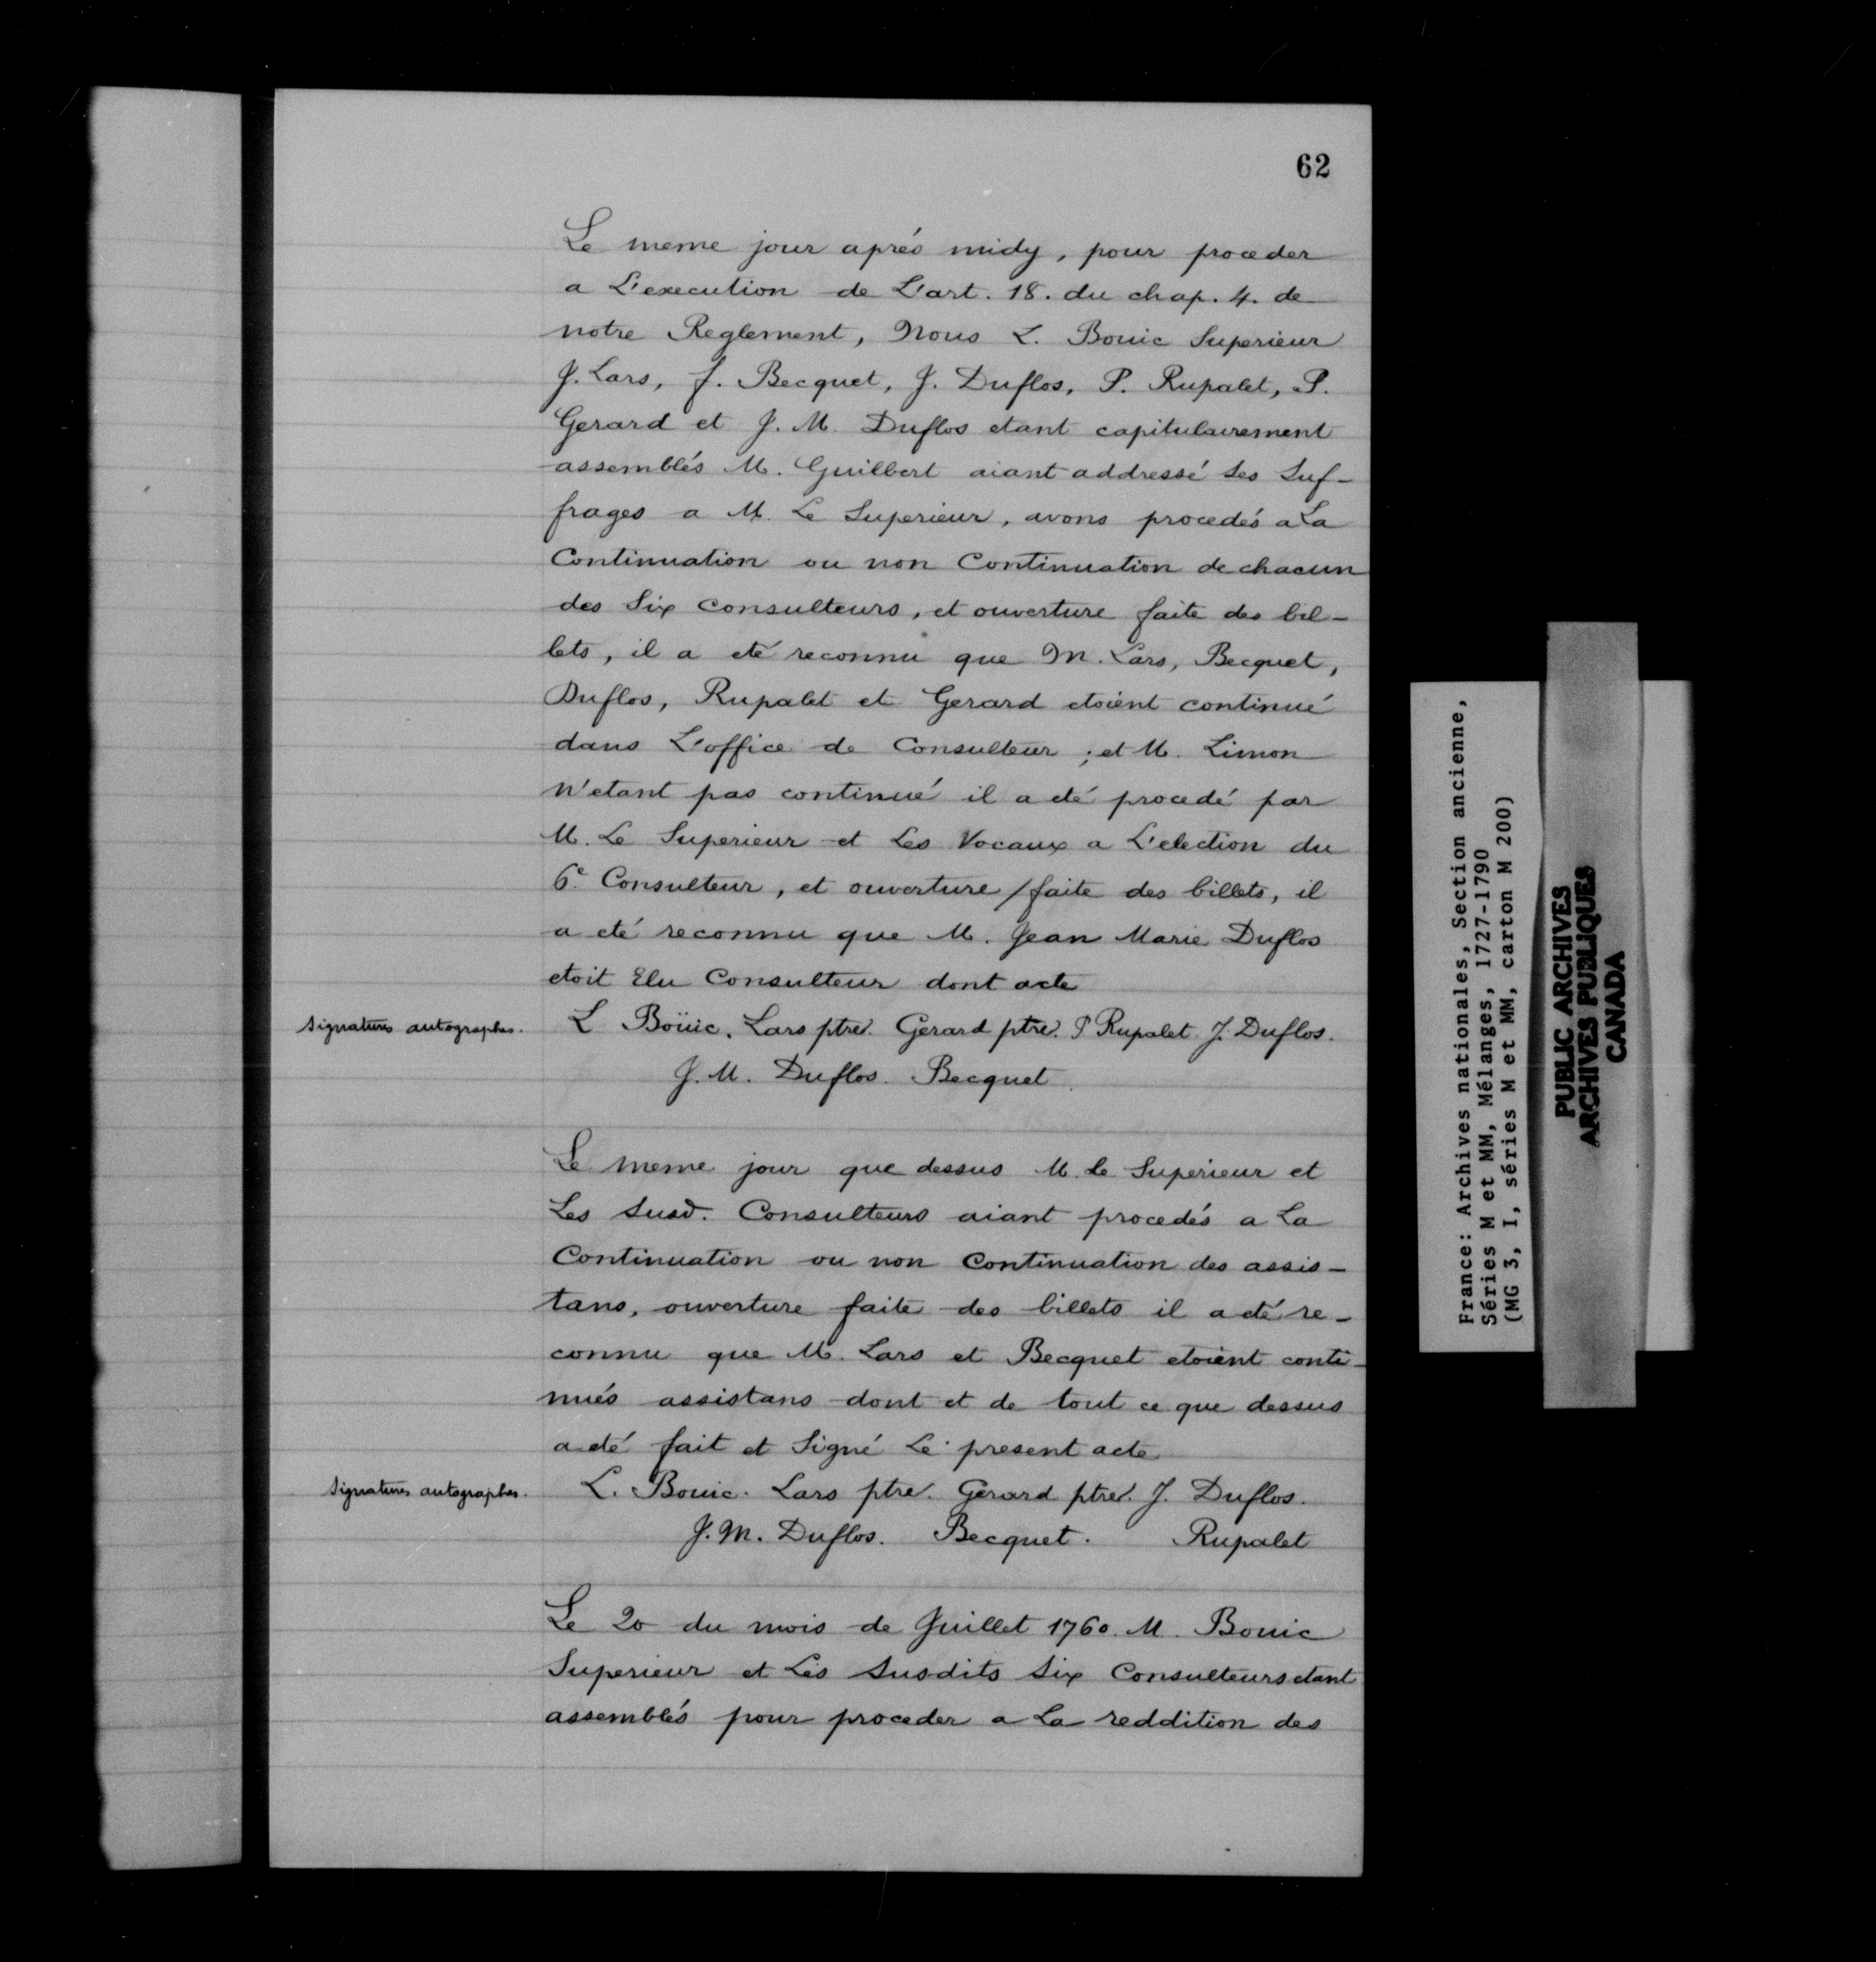 62
Le meme jour aprés midy, pour proceder
a L'execution de L'art. 18. du chap. 4. de
notre Reglement, Nous L. Bouic Superieur
J. Lars, f. Becquet, J. Duflos, P. Rupalet, P.
Gerard et J. M. Duflos etant capitulairement
assemblés M. Guilbert aiant addressé Ses Suf-
frages a M. Le Superieur, avons procedés a La
Continuation ou non Continuation de chacun
des Six Consulteurs, et ouverture faite des bil-
lets, il a eté reconnu que M. Lars, Becquet,
Duflos, Rupalet et Gerard etoient continué
dans L'office de Consulteur ; et M. Limon
N'etant pas continué il a eté procedé par
M. Le Superieur et Les Vocaux a L'election du
6e. Consulteur, et ouverture / faite des billets, il
a eté reconnu que M. Jean Marie Duflos
etoit Elu Consulteur dont acte
Signatures autographes. L Boüic. Lars ptre. Gerard ptre. P Rupalet J. Duflos.
J. M. Duflos. Becquet.
Le meme jour que dessus M. Le Superieur et
Les Susd. Consulteurs aiant procedés a La
Continuation ou non Continuation des assis-
tans, ouverture faite des billets il a eté re-
connu que M. Lars et Becquet etoient conti-
nués assistans dont et de tout ce que dessus
a eté fait et Signé Le present acte
Signatures autographes. L. Bouic. Lars ptre. Gerard ptre. J. Duflos.
J. M. Duflos. Becquet. Rupalet
Le 20 du mois de Juillet 1760. M. Bouic
Superieur et Les Susdits Six Consulteurs etant
assemblés pour proceder a La reddition des
France: Archives nationales, Section ancienne,
Séries M et MM, Mélanges, 1727-1790
(MG 3, I, séries M et MM, carton M 200)
PUBLIC ARCHIVES
ARCHIVES PUBLIQUES
CANADA